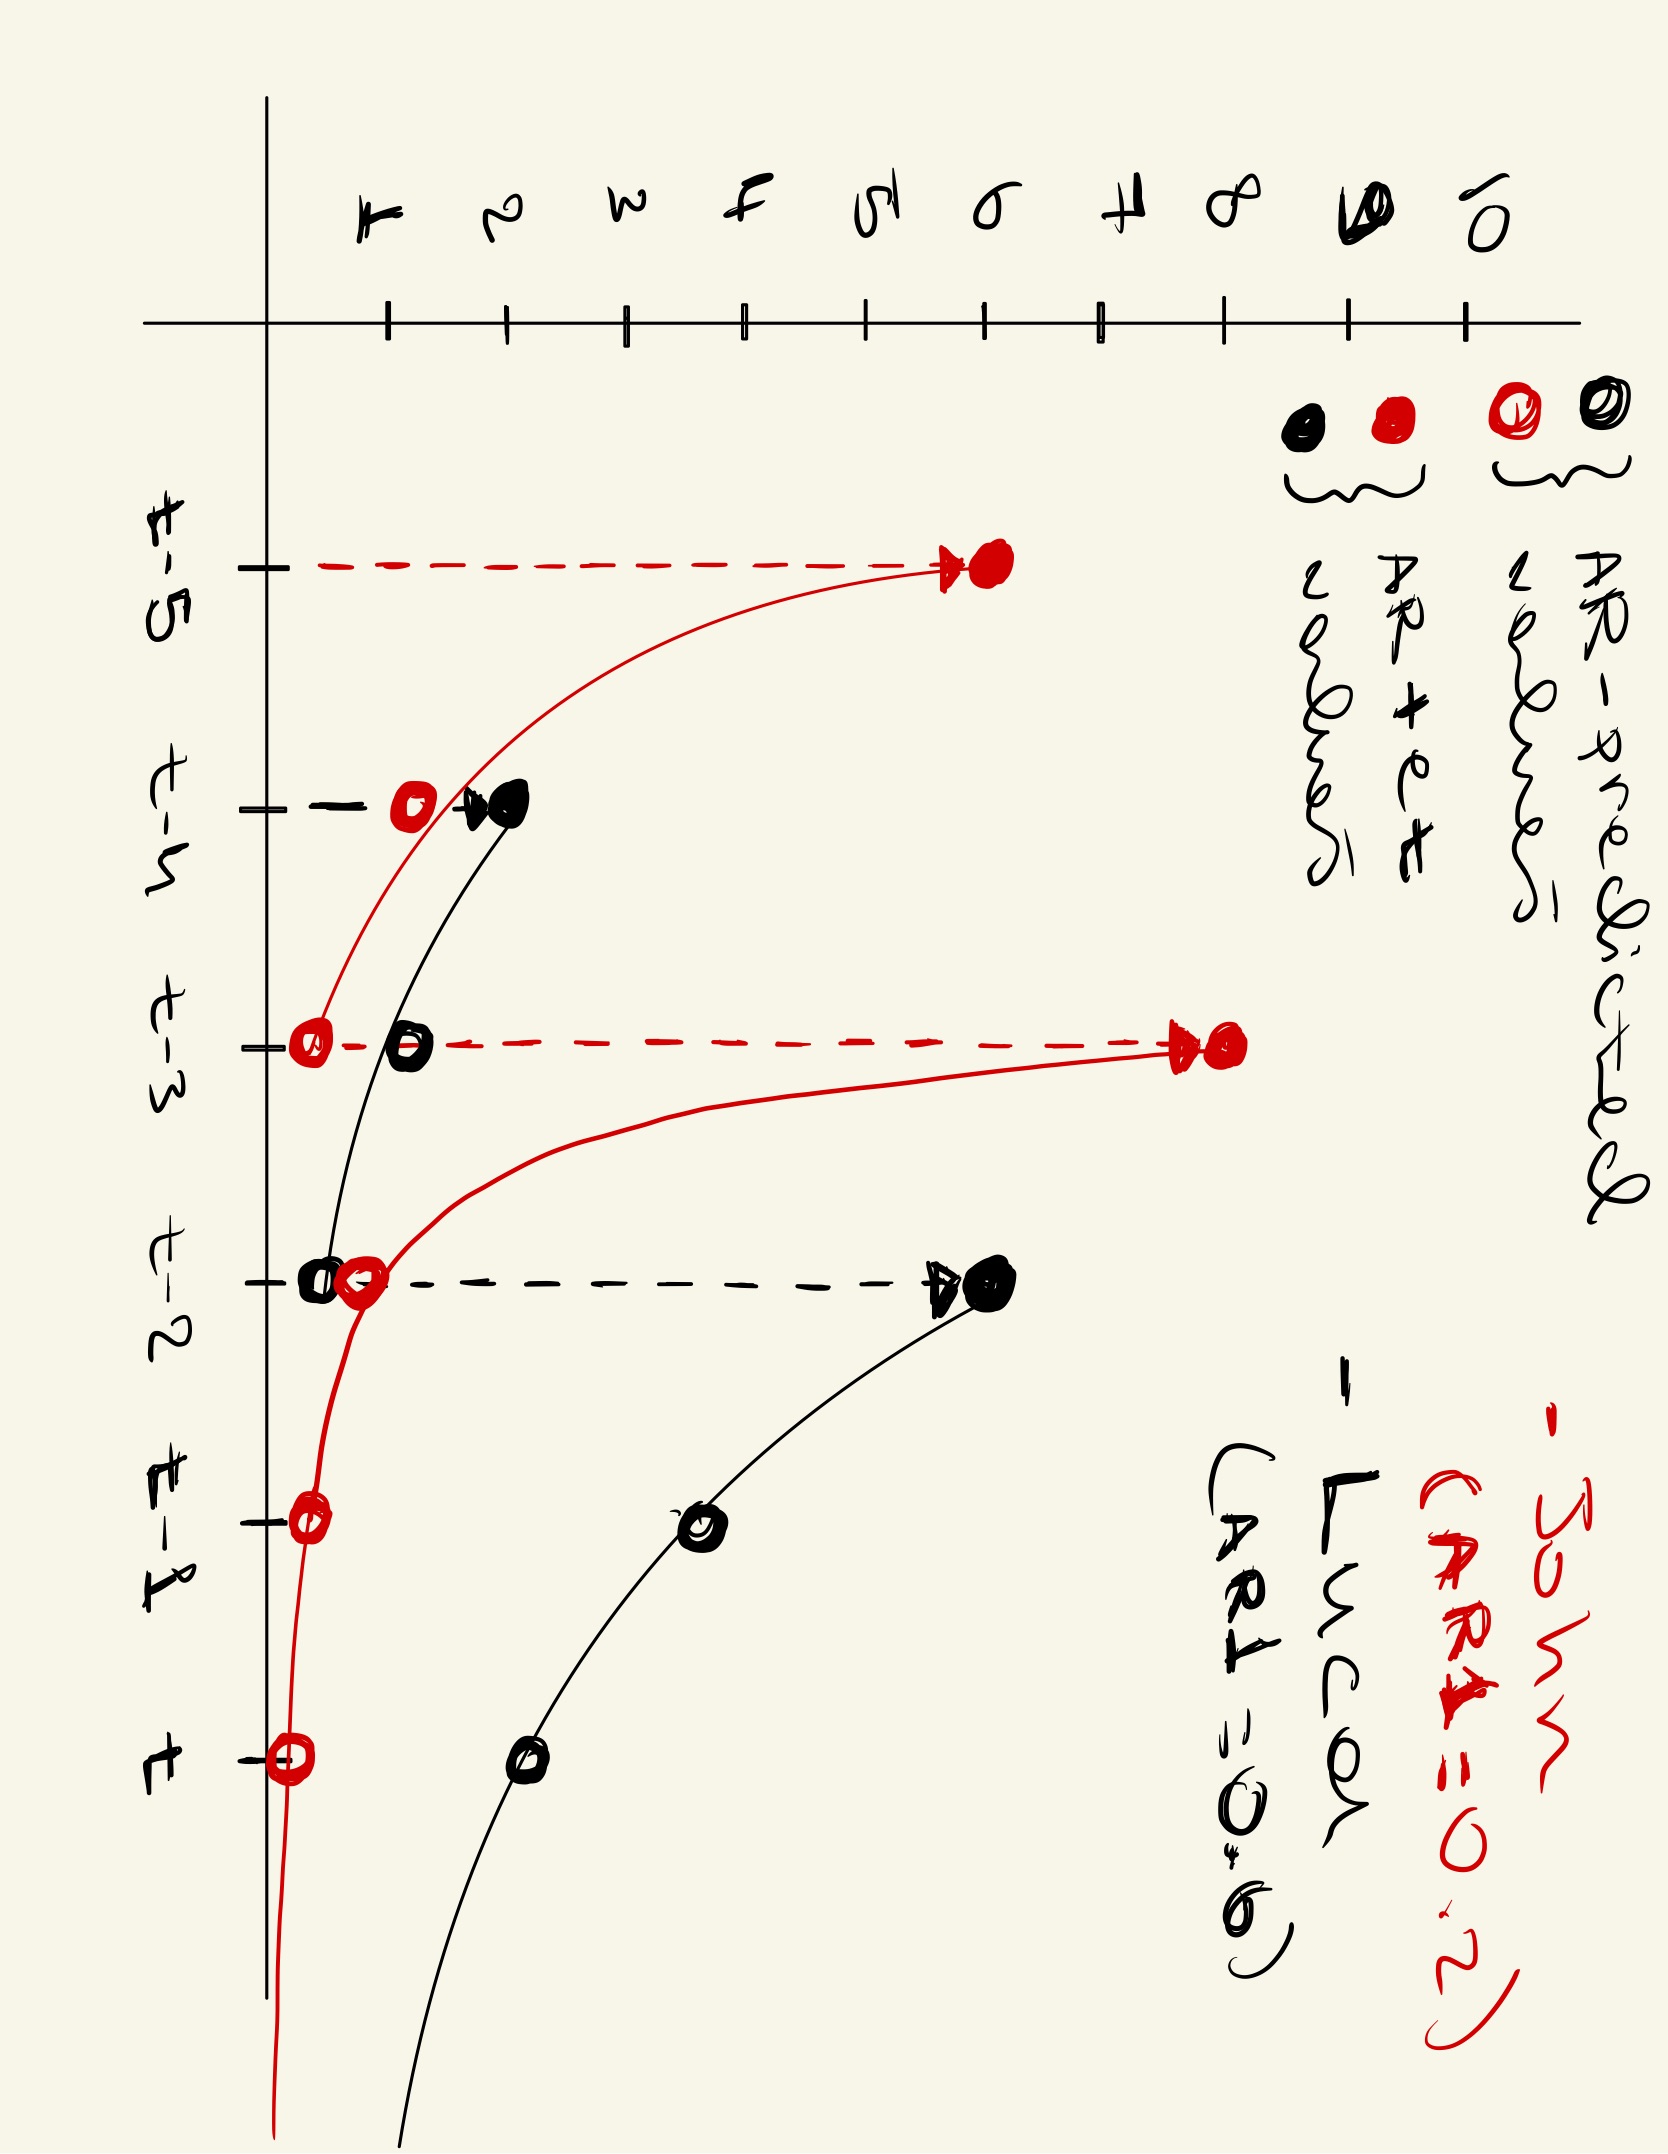 AR-predicted
values
AR + et
values
- John
(AR1=0.2)
- Lucas
(AR1=0.6)
10
9
8
7
6
5
4
3
2
1
t-5 t-4 t-3 t-2 t-1 t